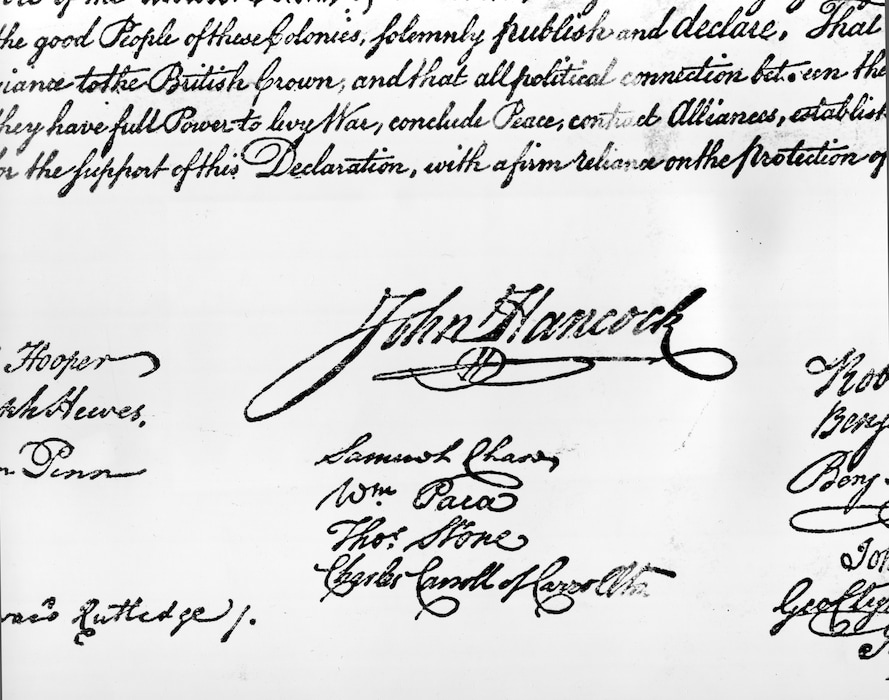 the good People of these Colonies, solemnly publish and declare, That
giance to the British Crown, and that all political connection between the
they have full Power to levy War, conclude Peace, contract Alliances, establish
for the support of this Declaration, with a firm reliance on the protection of
John Hancock
Hooper
Hewes,
Penn
Rutledge /.
Samuel Chase
Wm. Paca
Thos. Stone
Charles Carroll of Carrollton
Rob
Benj
Benj
Joh
Geo Clym